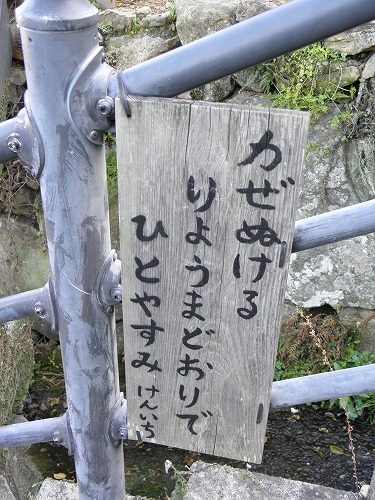 かぜぬける
りょうまどおりで
ひとやすみ けんいち